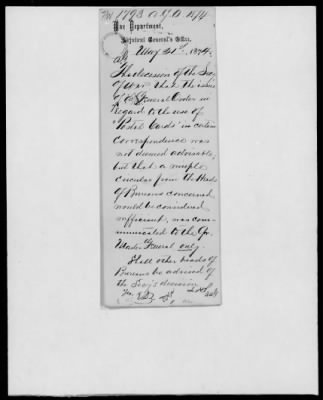 1793 A.G.O. 1874
War Department,
Adjutant General's Office,
May 21st, 1874.
The decision of the Secy
of War that the issue
of a General Order in
regard to the use of
"Postal Cards" in certain
correspondence was
not deemed advisable,
but that a simple
circular from the Heads
of Bureaus concerned
would be considered
sufficient, was com-
municated to the Qr.
Master General only.
Shall other heads of
Bureaus be advised of
the Secy's decision